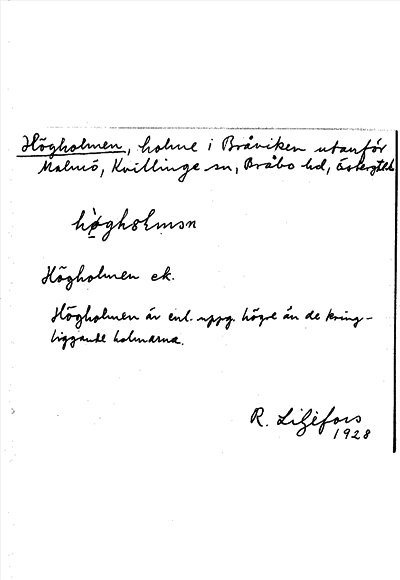 Högholmen, holme i Bråviken utanför
Malmö, Kvillinge sn, Bråbo hd, Östergtl.
hø̀gholmən
Högholmen ek.
Högholmen är enl. uppg. högre än de kring-
liggande holmarna.
R. Liljefors
1928